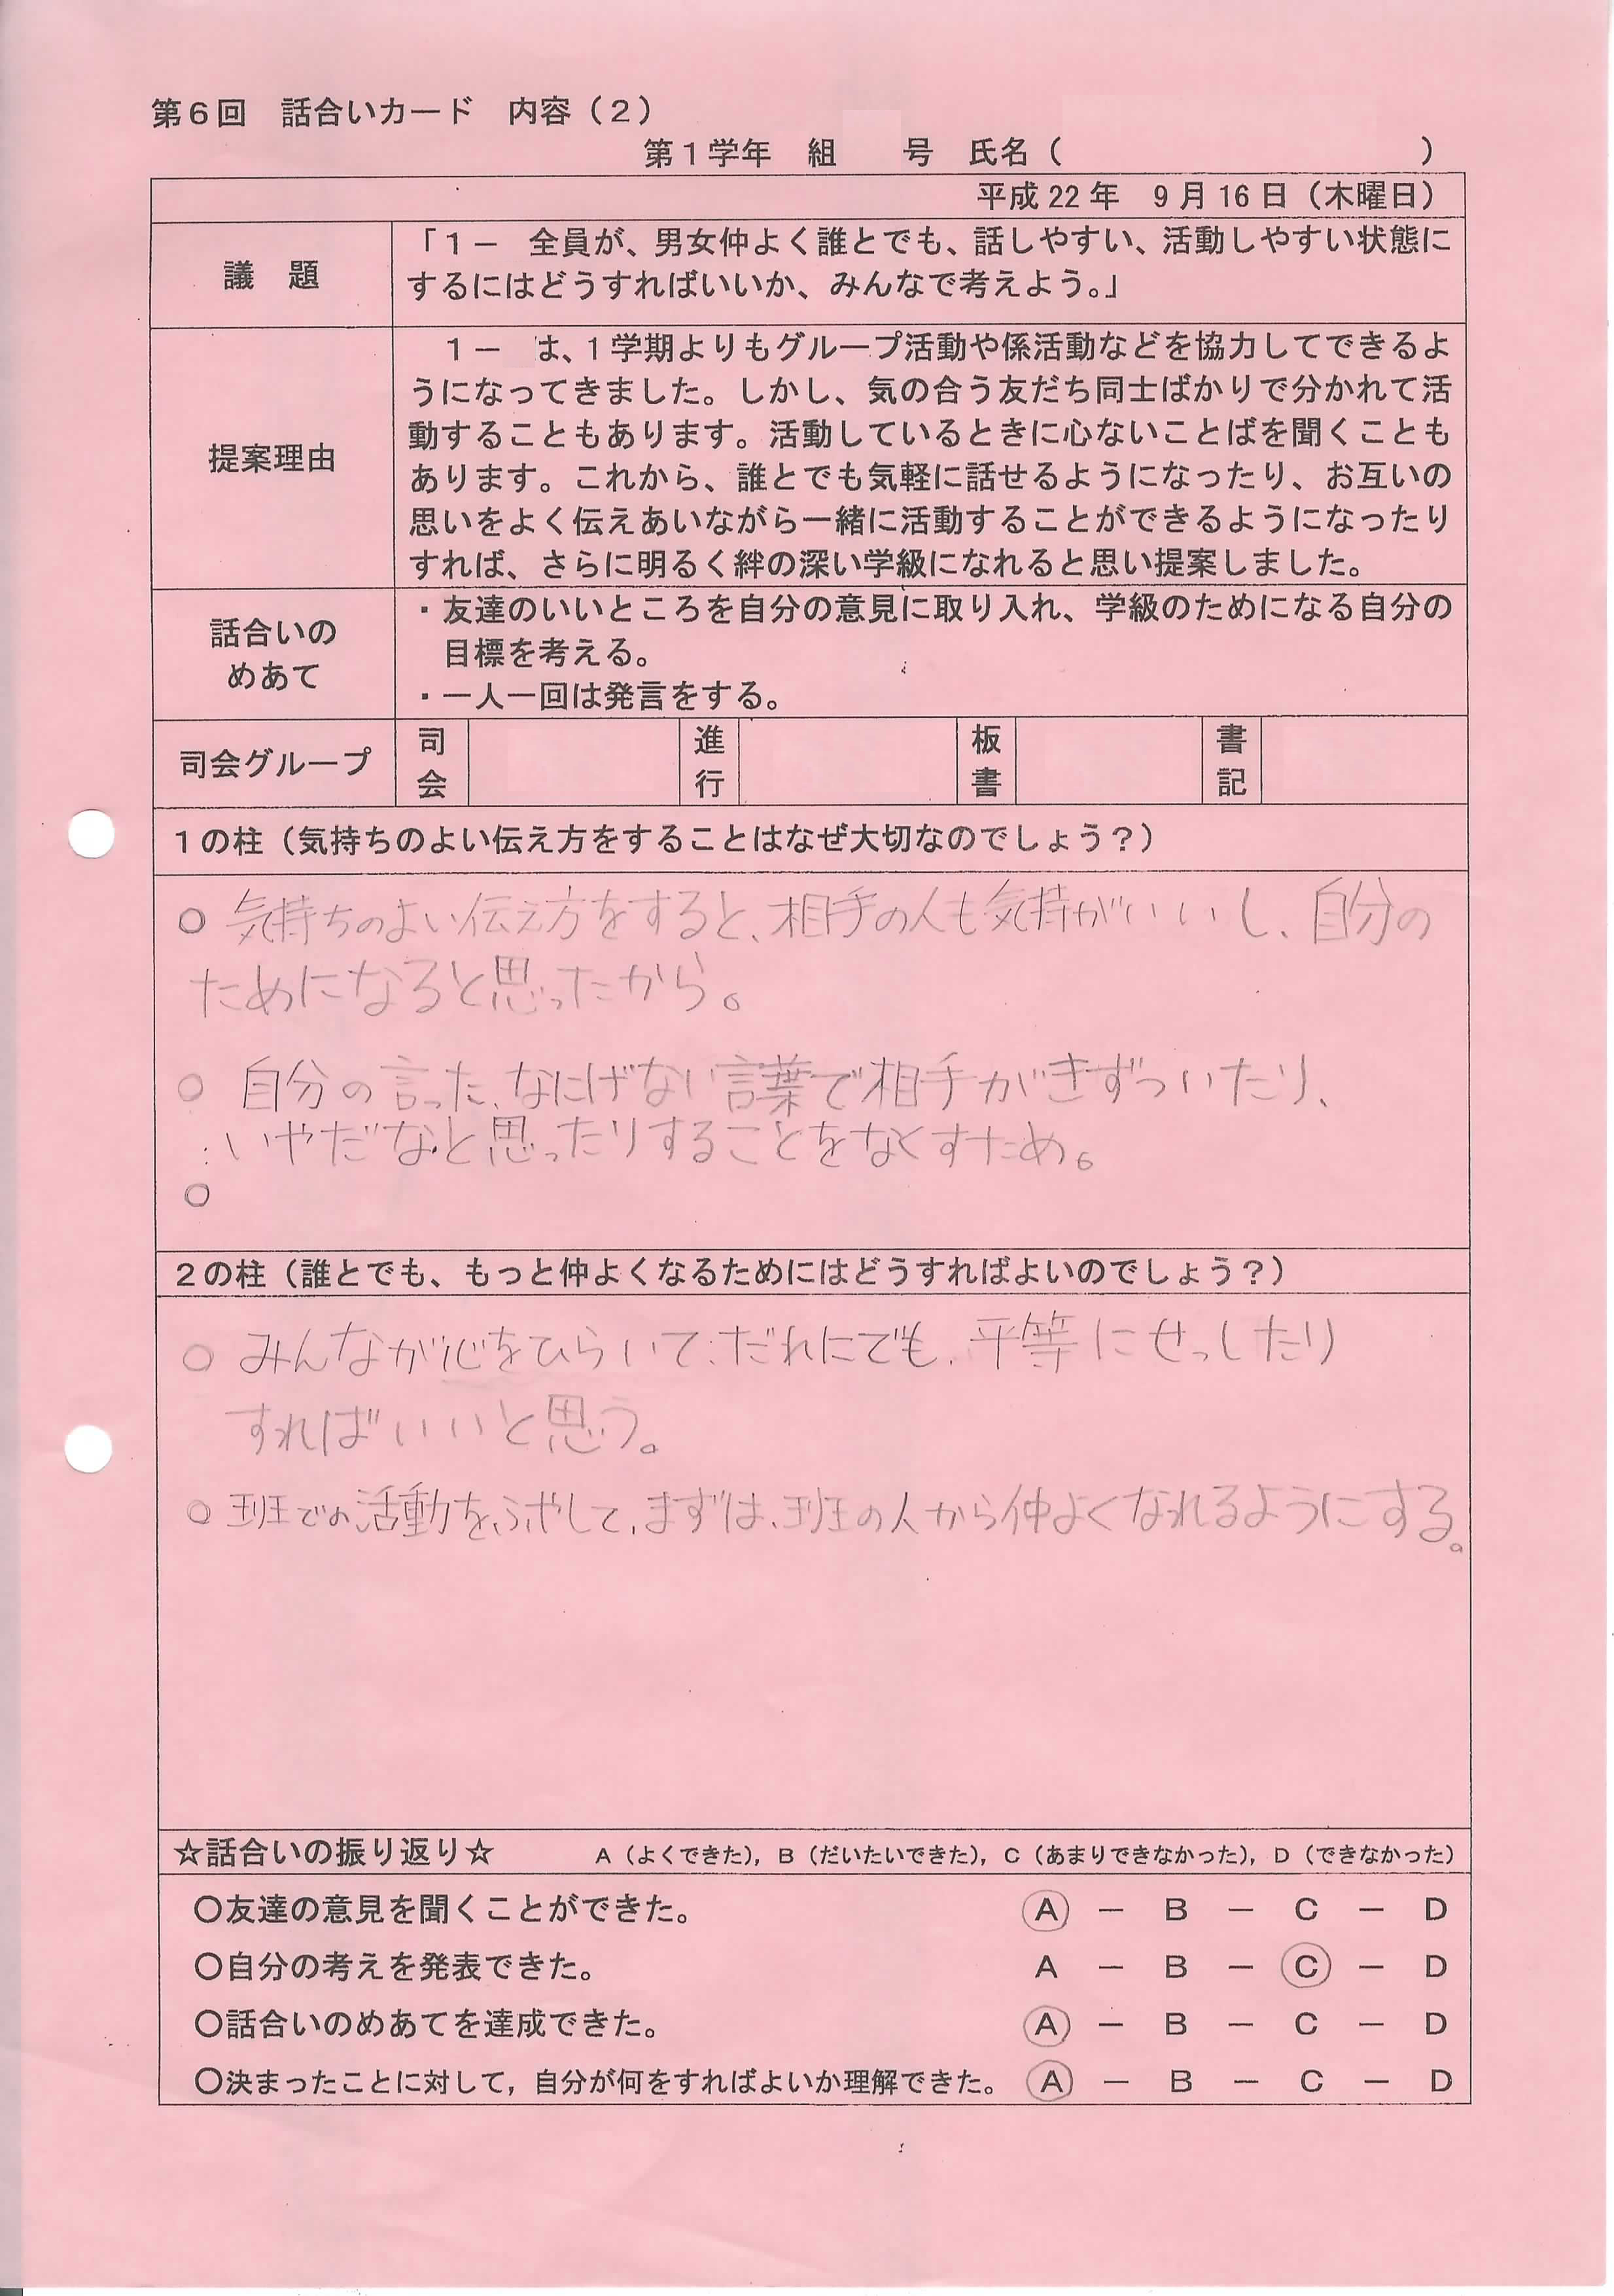 第6回　話合いカード　内容（2）
第1学年　組　　号　氏名（　　　　　　　　　　　）
平成22年　9月16日（木曜日）
議　題
「1－　全員が、男女仲よく誰とでも、話しやすい、活動しやすい状態に
するにはどうすればいいか、みんなで考えよう。」
提案理由
1－　は、1学期よりもグループ活動や係活動などを協力してできるよ
うになってきました。しかし、気の合う友だち同士ばかりで分かれて活
動することもあります。活動しているときに心ないことばを聞くことも
あります。これから、誰とでも気軽に話せるようになったり、お互いの
思いをよく伝えあいながら一緒に活動することができるようになったり
すれば、さらに明るく絆の深い学級になれると思い提案しました。
話合いの
めあて
・友達のいいところを自分の意見に取り入れ、学級のためになる自分の
目標を考える。
・一人一回は発言をする。
司会グループ
司会
進行
板書
書記
1の柱（気持ちのよい伝え方をすることはなぜ大切なのでしょう？）
○ 気持ちのよい伝え方をすると、相手の人も気持がいいし、自分の
ためになると思ったから。
○ 自分の言った、なにげない言葉で相手がきずついたり、
いやだなと思ったりすることをなくすため。
○
2の柱（誰とでも、もっと仲よくなるためにはどうすればよいのでしょう？）
○ みんなが心をひらいて、だれにでも、平等にせっしたり
すればいいと思う。
○ 班での活動をふやして、まずは、班の人から仲よくなれるようにする。
☆話合いの振り返り☆　　A（よくできた），B（だいたいできた），C（あまりできなかった），D（できなかった）
○友達の意見を聞くことができた。　A － B － C － D
○自分の考えを発表できた。　A － B － C － D
○話合いのめあてを達成できた。　A － B － C － D
○決まったことに対して，自分が何をすればよいか理解できた。　A － B － C － D